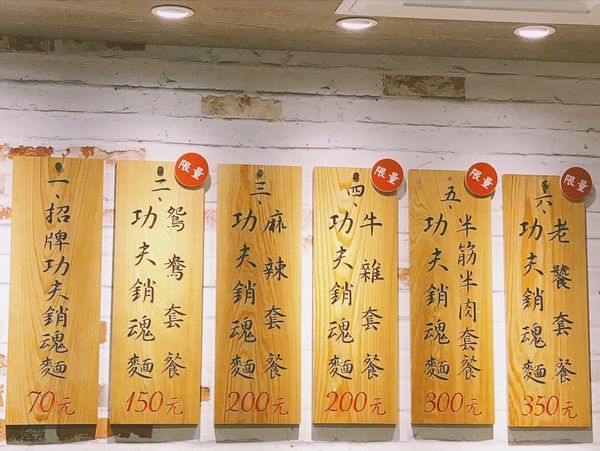 一、招牌功夫銷魂麵
70元
限量
二、鴛鴦套餐
功夫銷魂麵
150元
三、麻辣套餐
功夫銷魂麵
200元
限量
四、牛雜套餐
功夫銷魂麵
200元
限量
五、半筋半肉套餐
功夫銷魂麵
300元
限量
六、老饕套餐
功夫銷魂麵
350元